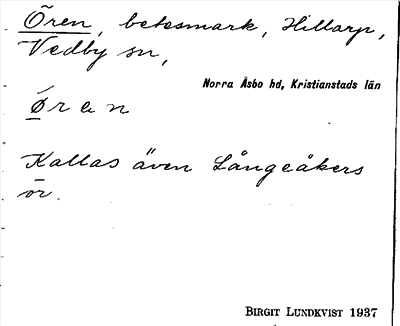 Ören, betesmark, Hillarp,
Vedby sn,
Norra Åsbo hd, Kristianstads län
Ø̱ren
Kallas även Långeåkers
ör.
BIRGIT LUNDKVIST 1937